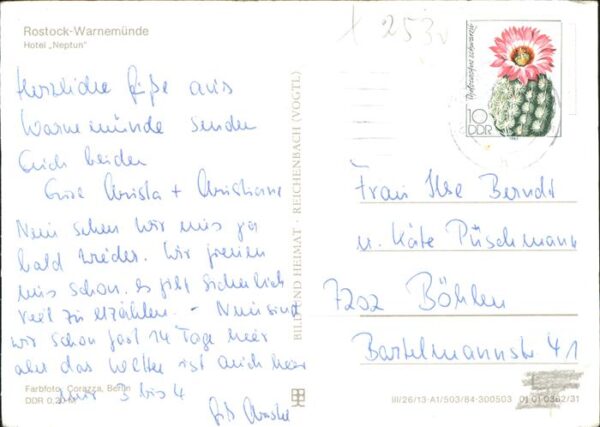 Rostock-Warnemünde
Hotel „Neptun"
Herzliche Grüße aus
Warnemünde senden
Euch beiden
Eure Christa + Christiane
Nun sehen wir uns ja
bald wieder. Wir freuen
uns schon. es gibt sicherlich
viel zu erzählen. - Nun sind
wir schon fast 14 Tage hier
aber das Wetter ist auch hier
nur 3 bis 4
Farbfoto: Corazza, Berlin
DDR 0,20 M
BILD UND HEIMAT · REICHENBACH (VOGTL)
253
10
DDR
Frau Ilse Berndt
u. Käte Püschmann
7202 Böhlen
Bartelmannstr 41
III/26/13-A1/503/84-300503 01 01 0362/31